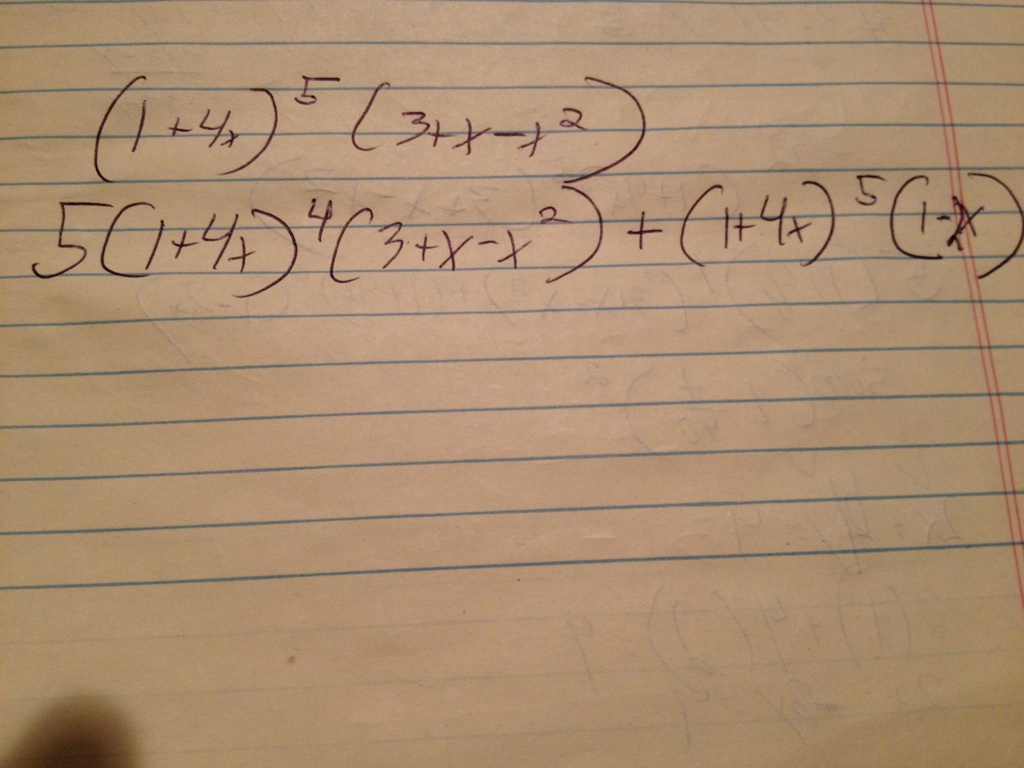 (1+4x)^5 (3+x-x^2)
5(1+4x)^4 (3+x-x^2) + (1+4x)^5 (1-2x)